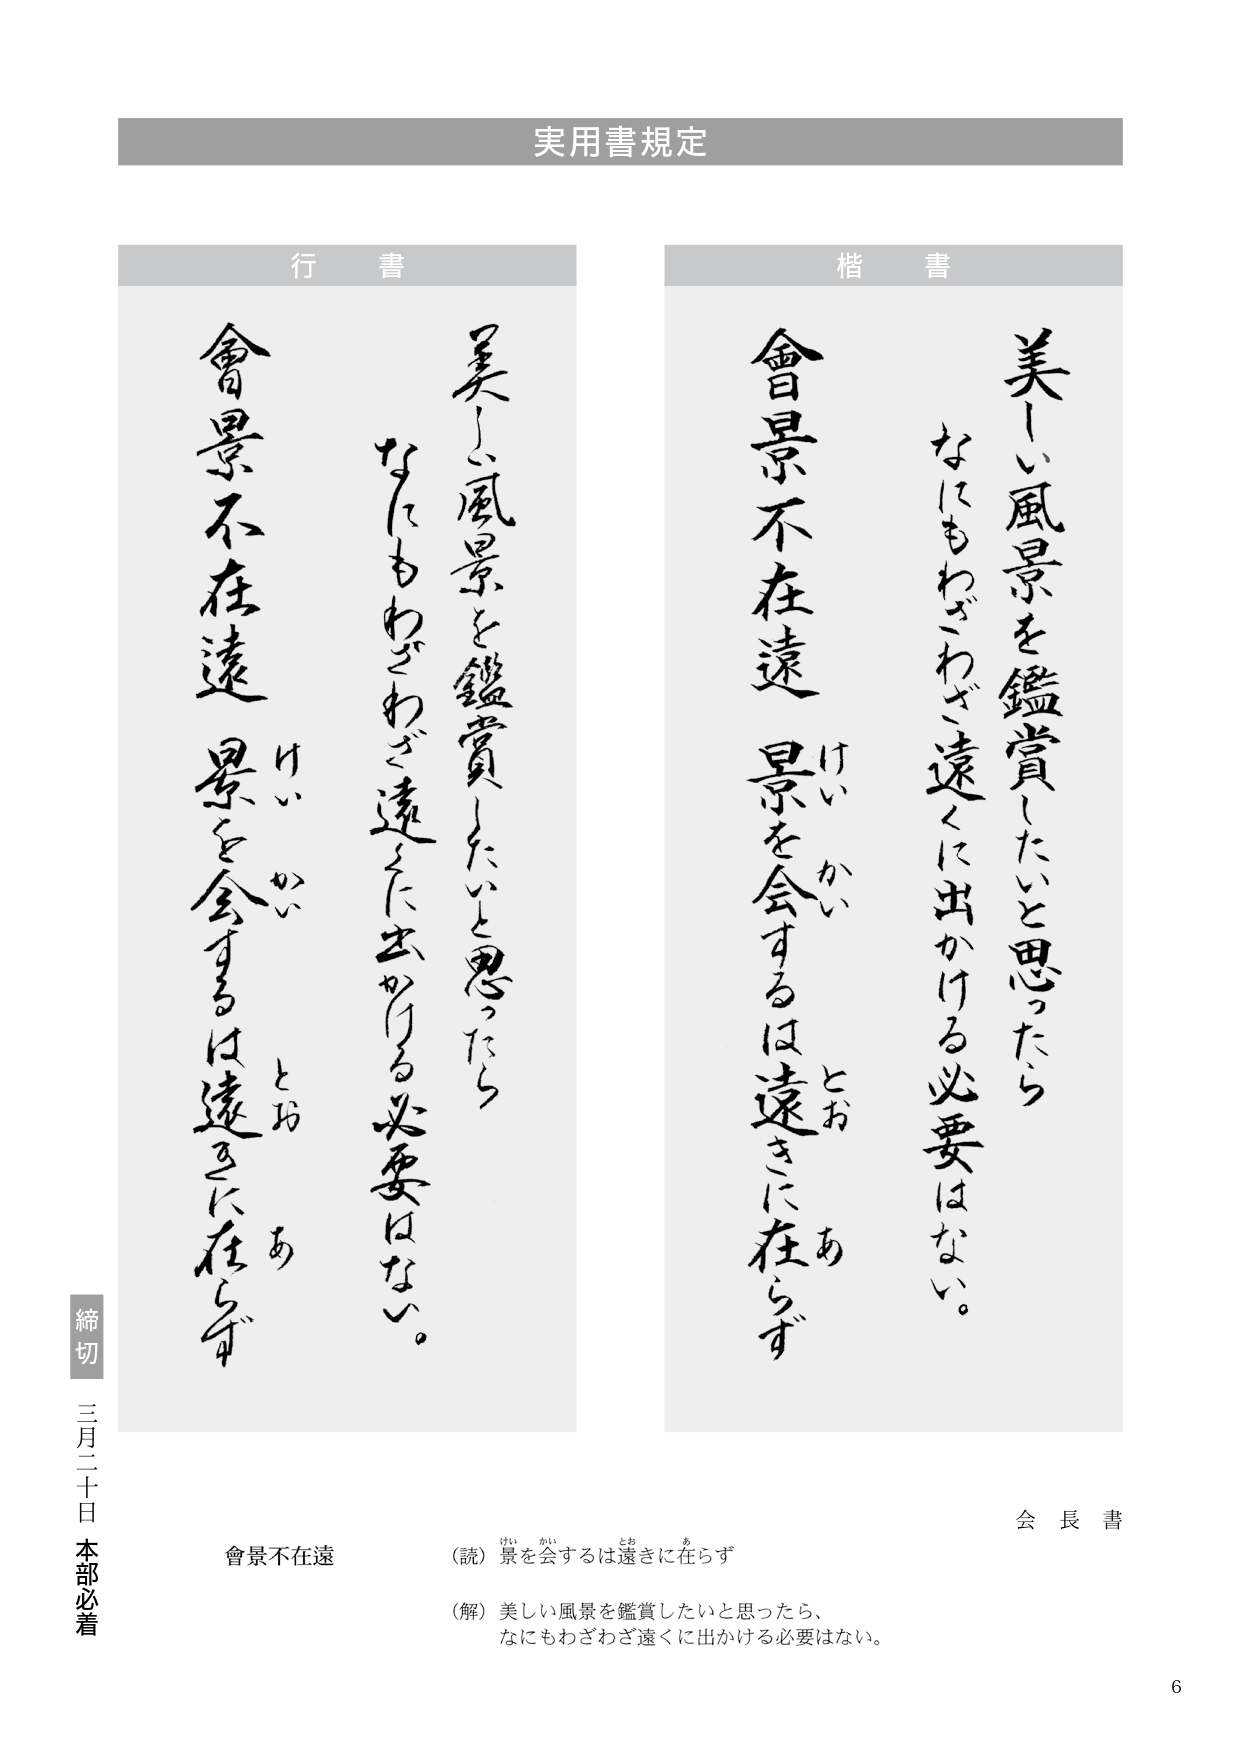 実用書規定
楷書
美しい風景を鑑賞したいと思ったら
なにもわざわざ遠くに出かける必要はない。
けい かい とお あ
會景不在遠 景を会するは遠きに在らず
行書
美しい風景を鑑賞したいと思ったら
なにもわざわざ遠くに出かける必要はない。
けい かい とお あ
會景不在遠 景を会するは遠きに在らず
締切 三月二十日 本部必着
会長書
會景不在遠
けい かい とお あ
（読）景を会するは遠きに在らず
（解）美しい風景を鑑賞したいと思ったら、
なにもわざわざ遠くに出かける必要はない。
6